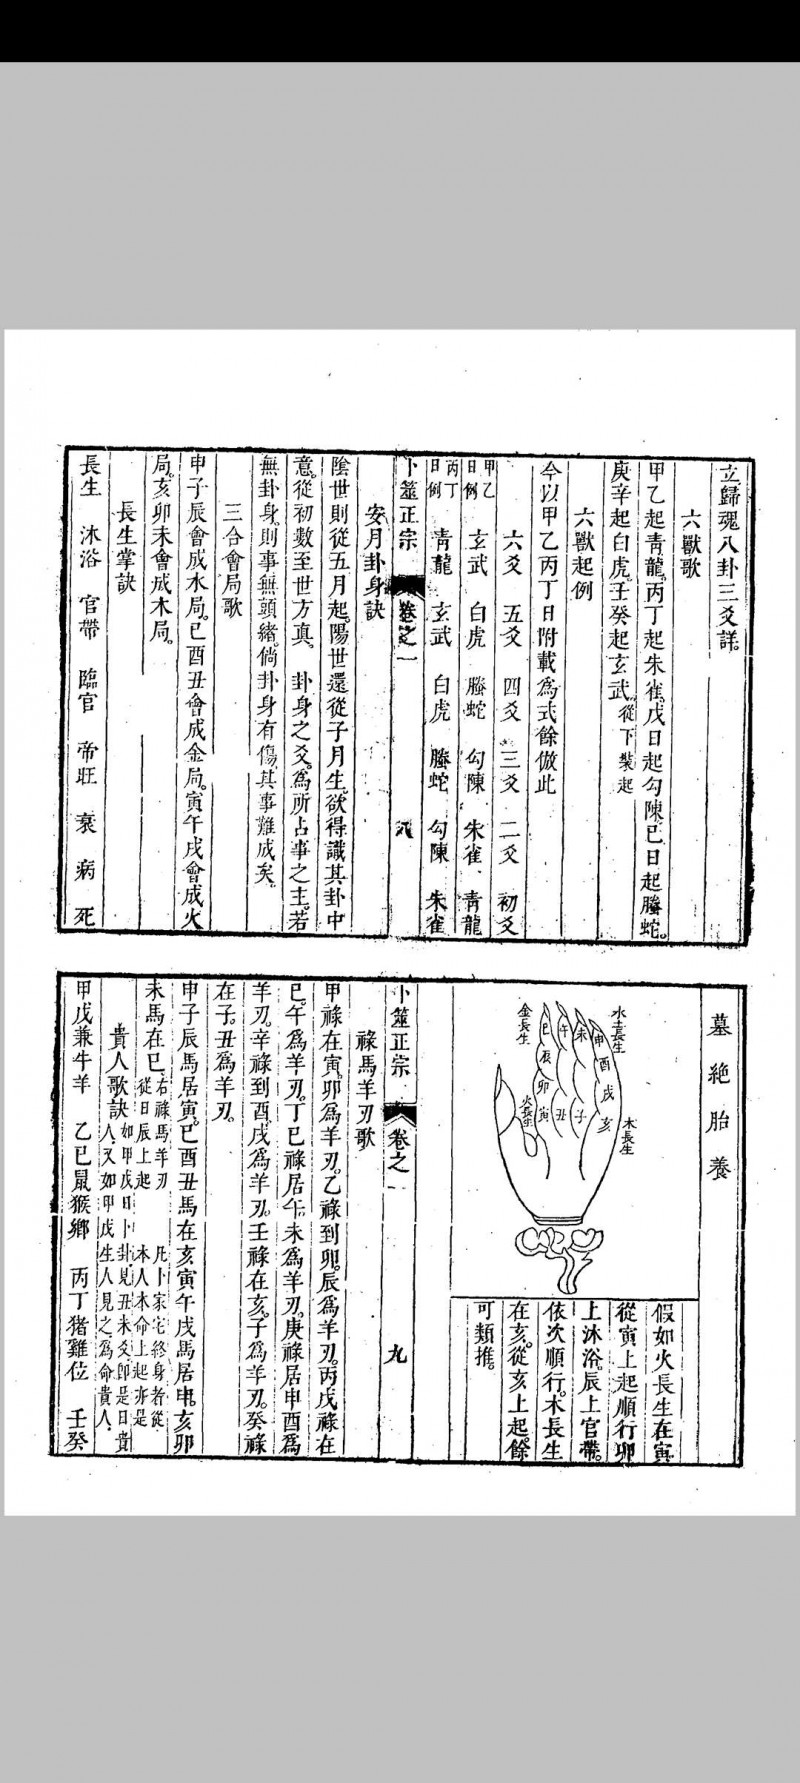 立歸魂八卦三爻詳。
六獸歌
甲乙起青龍。丙丁起朱雀。戊日起勾陳。已日起螣蛇。
庚辛起白虎。壬癸起玄武。從下裝起
六獸起例
今以甲乙丙丁日附載爲式餘倣此
六爻 五爻 四爻 三爻 二爻 初爻
甲乙日例 玄武 白虎 螣蛇 勾陳 朱雀 青龍
丙丁日例 青龍 玄武 白虎 螣蛇 勾陳 朱雀
卜筮正宗 卷之一 八
安月卦身訣
陰世則從五月起。陽世還從子月生。欲得識其卦中
意。從初數至世方真。 卦身之爻。爲所占事之主。若
無卦身。則事無頭緒。倘卦身有傷。其事難成矣。
三合會局歌
申子辰會成水局。巳酉丑會成金局。寅午戌會成火
局。亥卯未會成木局。
長生掌訣
長生 沐浴 官帶 臨官 帝旺 衰 病 死
墓絶胎養
水土長生
木長生
金長生
火長生
申 酉 戌 亥
未 子
午 丑
巳 辰 卯 寅
假如火長生在寅
從寅上起順行卯
上沐浴。辰上官帶。
依次順行。木長生
在亥。從亥上起。餘
可類推。
卜筮正宗 卷之一 九
祿馬羊刃歌
甲祿在寅。卯爲羊刃。乙祿到卯。辰爲羊刃。丙戊祿在
巳。午爲羊刃。丁巳祿居午。未爲羊刃。庚祿居申酉爲
羊刃。辛祿到酉。戌爲羊刃。壬祿在亥。子爲羊刃。癸祿
在子。丑爲羊刃。
申子辰馬居寅。巳酉丑馬在亥寅午戌馬居申。亥卯
未馬在巳。右祿馬羊刃從日辰上起 凡卜家宅終身者從本人本命上起亦是
貴人歌訣如甲戊日卜卦見丑未爻卽是日貴人又如甲戊生人見之爲命貴人
甲戊兼牛羊 乙巳鼠猴鄉 丙丁猪雞位 壬癸